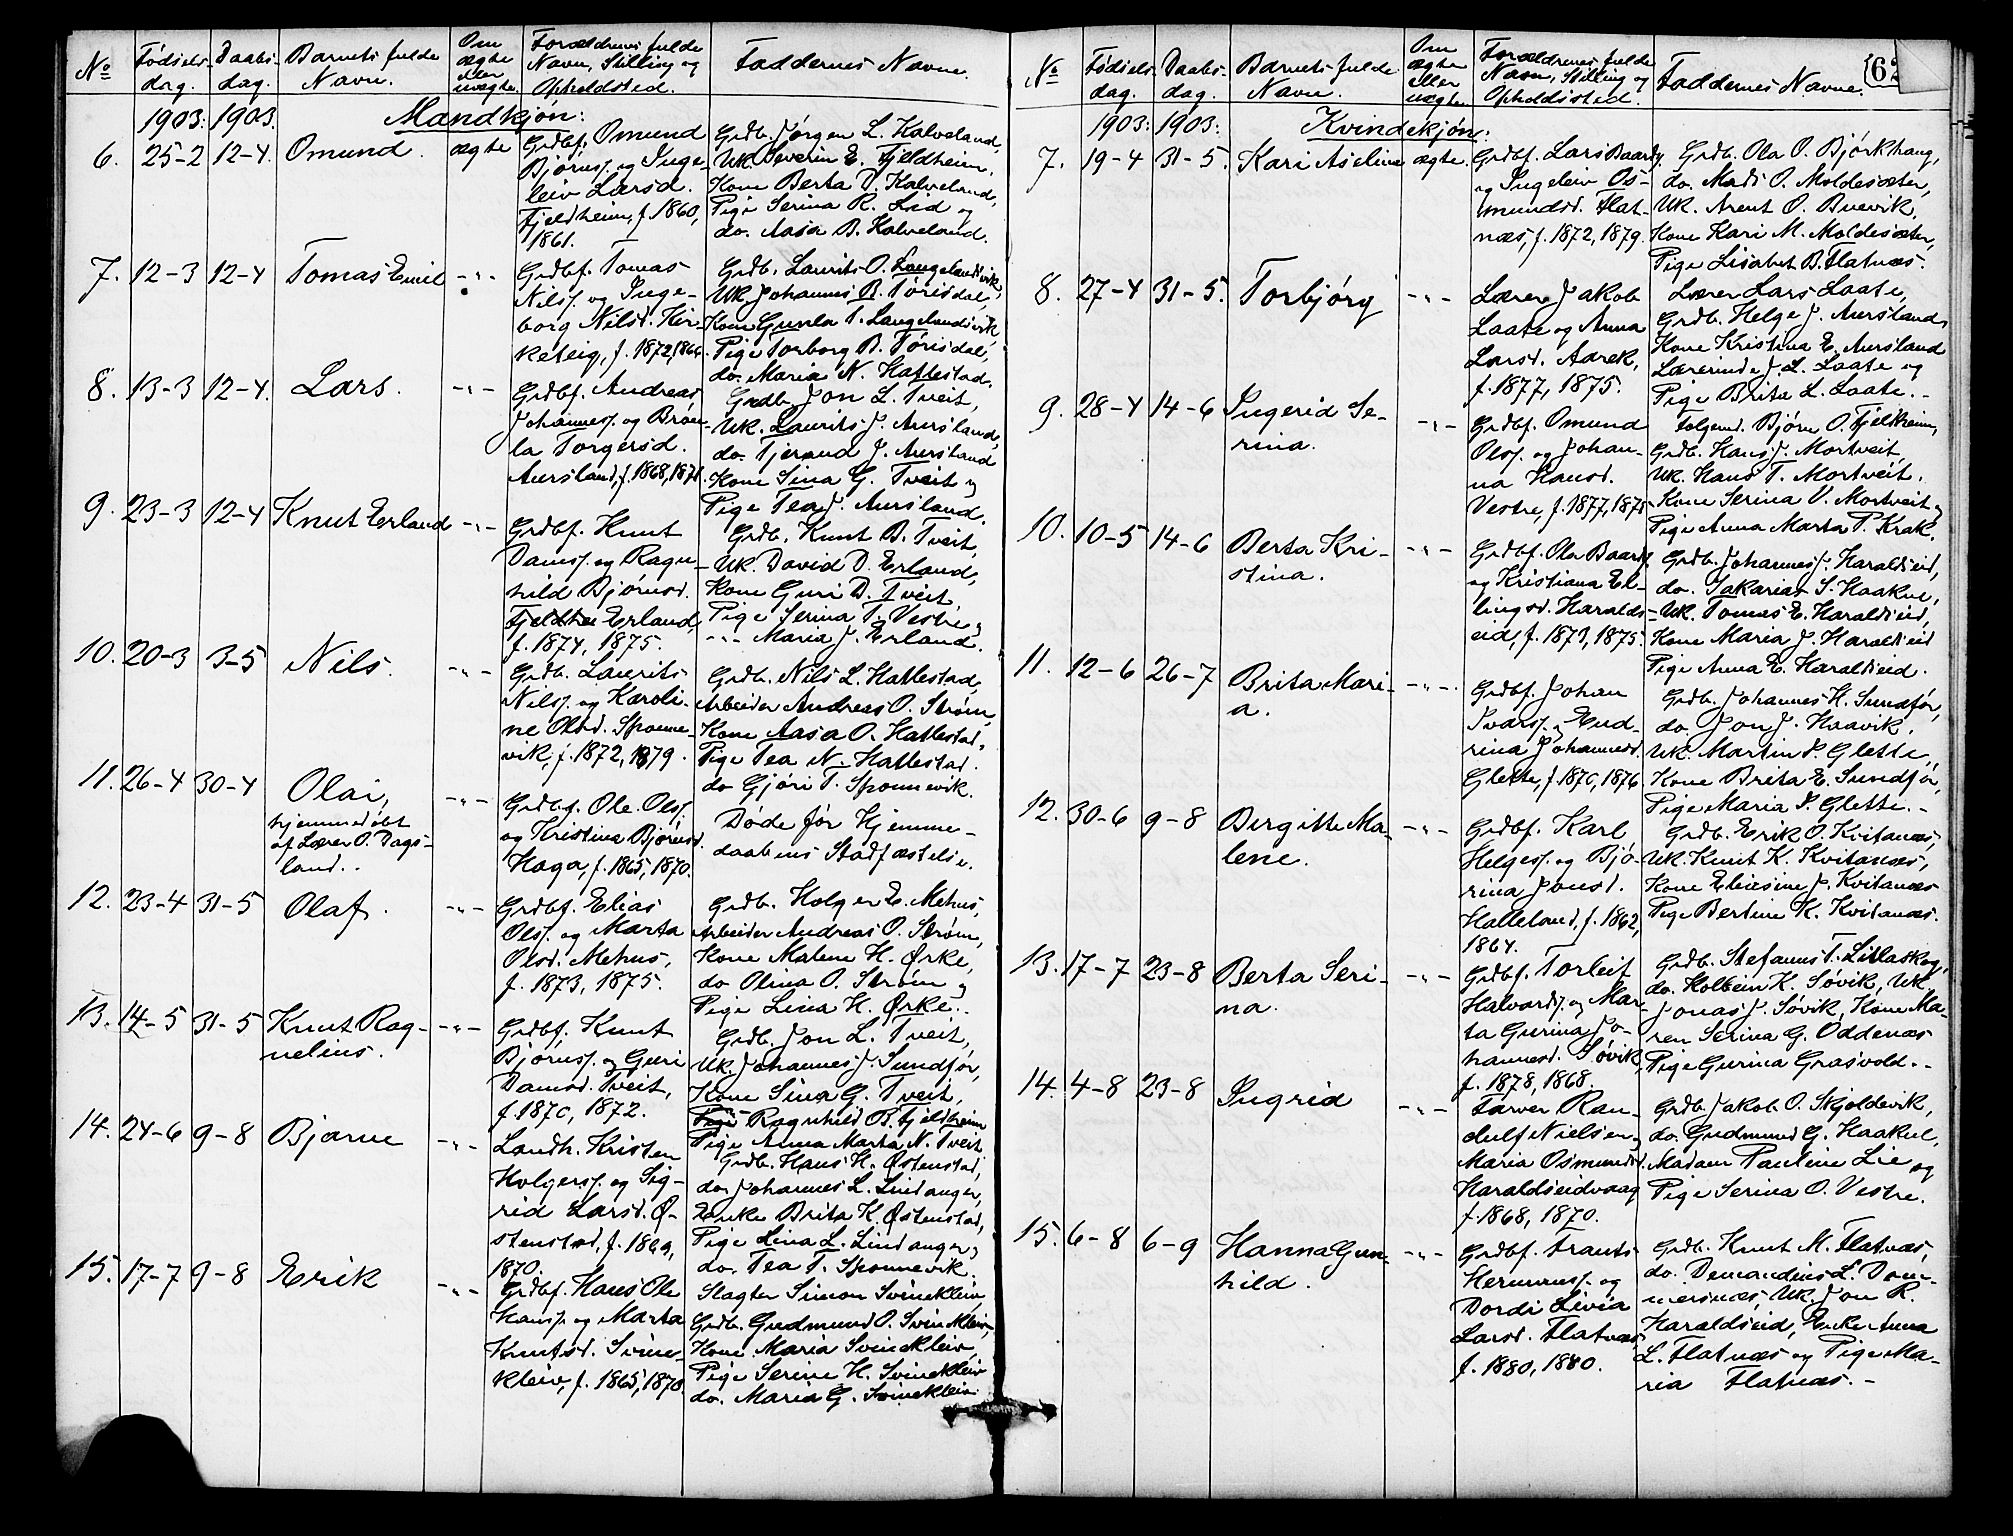 No
Fødsels-
dag.
Daabs-
dag.
Barnets fulde
Navn.
Om
ægte
eller
uægte.
Forældrenes fulde
Navn, Stilling og
Opholdssted.
Faddernes Navne.
1903: 1903.
Mandkjøn:
6. 25-2 12-4. Omund. ægte
Grdbf. Omund
Bjørns. og Inge-
leiv Larsd.
Fjeldheim, f. 1860,
1861.
Grdb. Jørgen L. Kalveland,
Uk. Severin E. Fjeldheim,
Kone Berta D. Kalveland,
Pige Serina R. Lid og
do. Aasa B. Kalveland.
7. 12-3 12-4 Tomas Emil -"-
Grdbf. Tomas
Nilss. og Inge-
borg Nilsd. Kir-
keteig, f. 1872, 1866.
Grdb. Laurits O. Langelandsvik,
Uk. Johannes B. Tørisdal,
Kone Gunla T. Langelandsvik,
Pige Torborg B. Tørisdal,
do. Maria N. Hattestad.
8. 13-3 12-4. Lars. -"-
Grdbf. Andreas
Johanness. og Bron-
la Torgersd.
Aursland, f. 1868, 1871.
Grdb. Jon L. Tveit,
Uk. Laurits J. Aursland,
do. Tjerand J. Aursland
Kone Sina G. Tveit og
Pige Tea J. Aursland.
9. 23-3 12-4 Knut Erland -"-
Grdbf. Knut
Dams. og Ragn-
hild Bjørnsd.
Erland,
f. 1874, 1875.
Grdb. Knut B. Tveit,
Uk. David D. Erland,
Kone Guri D. Tveit,
Pige Serina T. Vestre,
-"- Maria J. Erland.
10. 20-3 3-5 Nils. -"-
Grdb. Laurits
Nilss. og Karoli-
ne Olsd. Sponne-
vik, f. 1872, 1879.
Grdb. Nils L. Hattestad,
Arbeider Andreas O. Strøm,
Kone Aasa O. Hattestad,
Pige Tea N. Hattestad.
do Gjøri T. Sponnevik.
11. 26-4 30-4 Olai, -"-
hjemmedøbt
af Lærer O. Dags-
land..
Grdbf. Ole Olss.
og Kristina Bjørnsd.
Haga, f. 1865, 1870.
Døde før Hjemme-
daabens Stadfæstelse.
12. 23-4 31-5 Olaf. -"-
Grdbf. Elias
Olss. og Marta
Olsd. Mehus,
f. 1873, 1875.
Grdb. Holger E. Mehus,
Arbeider Andreas O. Strøm,
Kone Malene H. Ørke,
do Olina O. Strøm og
Pige Lina H. Ørke..
13. 14-5 31-5 Knut Rag- -"-
nelius.
Grdbf. Knut
Bjørnss. og Guri
Damsd. Tveit,
f. 1870, 1872.
Grdb. Jon L. Tveit,
Uk. Johannes J. Sundfør,
Kone Sina G. Tveit,
Pige Ragnhild B. Fjeldheim
Pige Anna Marta N. Tveit
14. 24-6 9-8 Bjarne -"-
Landh. Kristen
Holgerss. og Sig-
rid Larsd. Ø-
stenstad, f. 1869,
1870.
Grdb. Hans H. Østenstad,
do. Johannes L. Lindanger,
Enke Brita K. Østenstad,
Pige Lina L. Lindanger,
do. Tea T. Sponnevik.
15. 17-7 9-8 Erik -"-
Grdbf. Hans Ole
Hanss. og Marta
Knutsd. Svine-
kleiv, f. 1865, 1870.
Slagter Simon Svinekleiv,
Grdb. Gudmund O. Svinekleiv,
Kone Maria Svinekleiv,
Pige Serine H. Svinekleiv
do. Maria G. Svinekleiv.
No
Fødsels-
dag.
Daabs-
dag.
Barnets fulde
Navn.
Om
ægte
eller
uægte.
Forældrenes fulde
Navn, Stilling og
Opholdssted.
Faddernes Navne.
62
1903: 1903:
Kvindekjøn:
7. 19-4 31-5. Kari Aseline ægte.
Grdbf. Lars Baards.
og Ingeleiv Os-
mundsd. Flat-
næs, f. 1872, 1879.
Grdb. Ola O. Bjørkhaug,
do. Mads O. Moldesæter,
Uk. Arent O. Buevik,
Kone Kari M. Moldesæter,
Pige Lisabet B. Flatnæs.
8. 27-4 31-5. Torbjørg -"-
Lærer Jakob
Laate og Anna
Larsd. Aarek,
f. 1877, 1875.
Lærer Lars Laate,
Grdb. Helge J. Aursland,
Kone Kristina E. Aursland
Lærerinde J. L. Laate og
Pige Brita L. Laate.-
9. 28-4 14-6 Ingerid Se- -"-
rina.
Grdbf. Omund
Olss. og Johan-
na Hansd.
Vestre, f. 1877, 1875
Folgemd. Bjørn O. Fjeldheim,
Grdb. Hans J. Mortveit,
Uk. Hans T. Mortveit.
Kone Serina V. Mortveit og
Pige Anna Marta P. Krak.
10. 10-5 14-6 Berta Kri- -"-
stina.
Grdbf. Ola Baards.
og Kristiana El-
lingsd. Haralds-
eid, f. 1871, 1875.
Grdb. Johannes J. Haraldseid,
do. Sakarias S. Haakul,
Uk. Tomas E. Haraldseid,
Kone Maria J. Haraldseid
Pige Anna E. Haraldseid.
11. 12-6 26-7 Brita Mari- -"-
a.
Grdbf. Johan
Ivarss. og End-
rina Johannesd.
Glette, f. 1870, 1876
Grdb. Johannes H. Sundfør,
do. Jon J. Haavik,
Uk. Martin I. Glette,
Kone Brita E. Sundfør,
Pige Maria I. Glette.-
12. 30-6 9-8 Birgitte Ma- -"-
lene.
Grdbf. Karl
Helgess. og Bjø-
rina Jonsd.
Halleland, f. 1862,
1864.
Grdb. Erik O. Kvitanæs,
Uk. Knut K. Kvitanæs,
Kone Elisine J. Kvitanæs
Pige Bertine K. Kvitanæs.
13. 17-7 23-8 Berta Seri- -"-
na.
Grdbf. Torleif
Halvards. og Mar-
ta Gurina Jo-
hannesd. Søvik
f. 1878, 1868.
Grdb. Stefanus T. Litlaskog,
do. Kolbein K. Søvik, Uk.
Jonas J. Søvik, Kone Ma-
ren Serina G. Oddenæs
Pige Gurina Grasvold.-
14. 4-8 23-8 Ingrid -"-
Farver Ran-
dulf Nielsen og
Maria Osmundsd.
Haraldseidvaag
f. 1868, 1870.
Grdb. Jakob O. Skjoldevik,
do. Gudmund G. Haakul,
Madam Pauline Lie og
Pige Serina O. Vestre.
15. 6-8 6-9 Hanna Gun- -"-
hild.
Grdbf. Frants
Hermanss. og
Dordi Livia
Larsd. Flatnæs
f. 1880, 1880.
Grdb. Knut M. Flatnæs,
do. Demandius L. Dom-
mersnæs, Uk. Jon R.
Haraldseid, Enke Anna
L. Flatnæs og Pige Ma-
ria Flatnæs.-